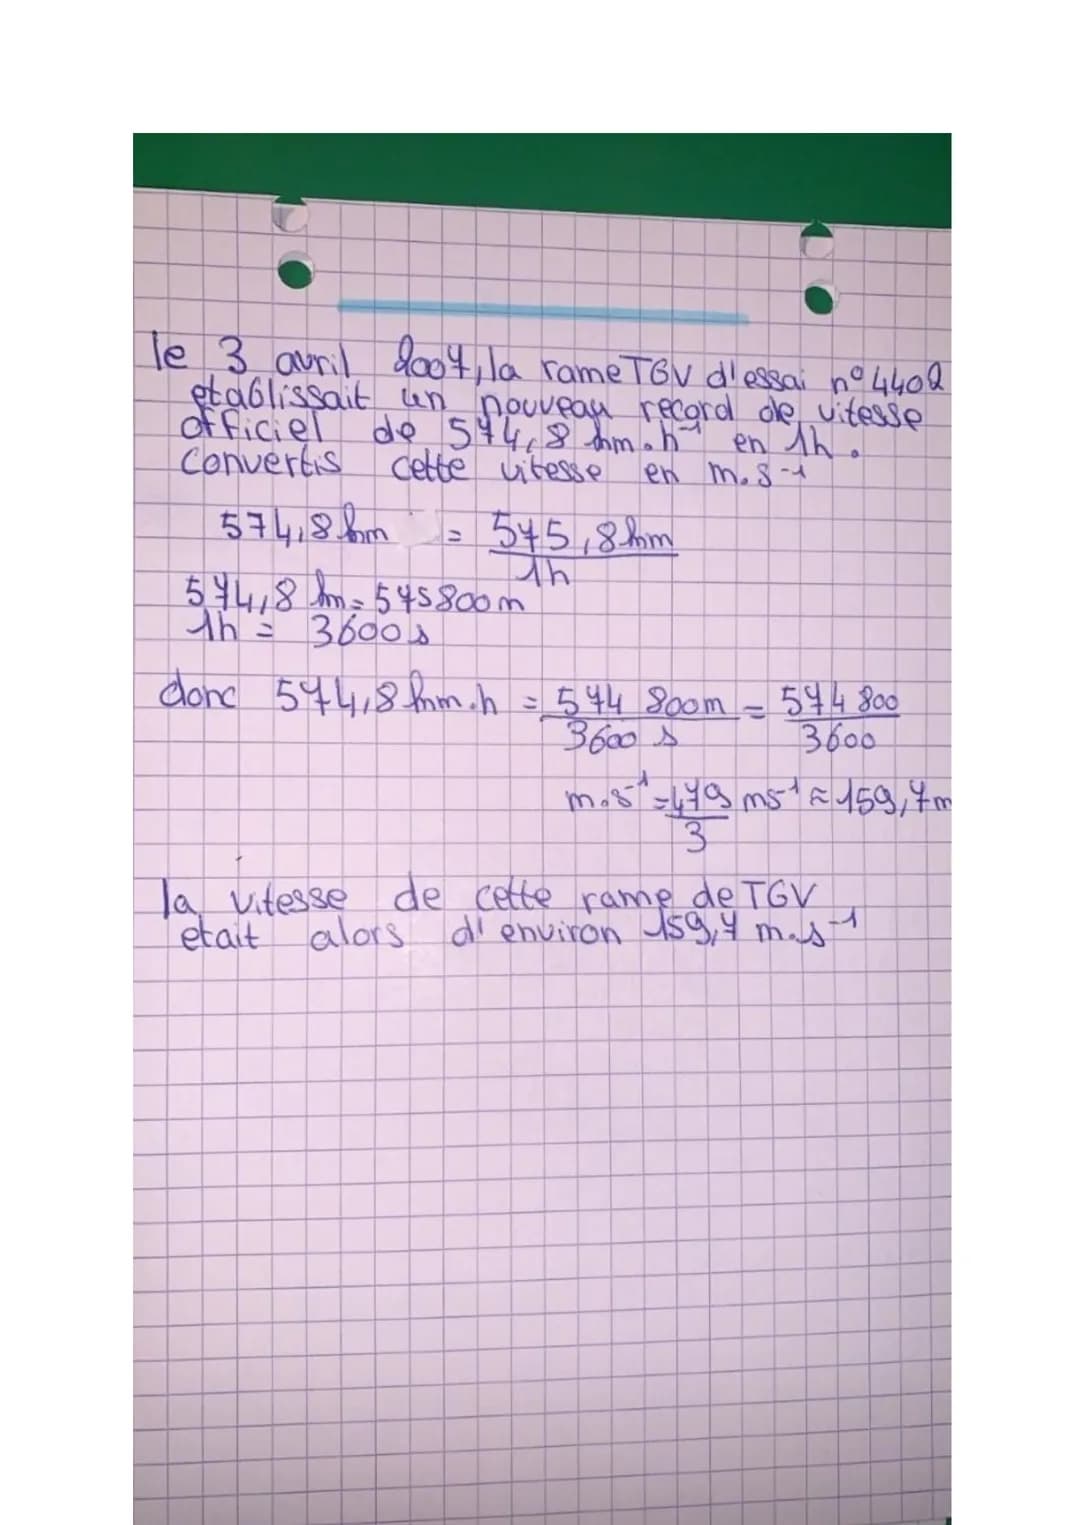 le 3 avril 2007, la rame TGV d'essai n°4402
etablissait un nouveau record de vitesse
officiel de 574,8 km.h⁻¹ en 1h.
Convertis cette vitesse en m.s⁻¹
574,8 km = 575,8 km / 1h
574,8 km = 575800 m
1h = 3600 s
donc 574,8 km.h = 574 800m / 3600 s = 574 800 / 3600
m.s⁻¹ = 479 / 3 ms⁻¹ ≈ 159,7 m
la vitesse de cette rame de TGV
etait alors d'environ 159,7 m.s⁻¹